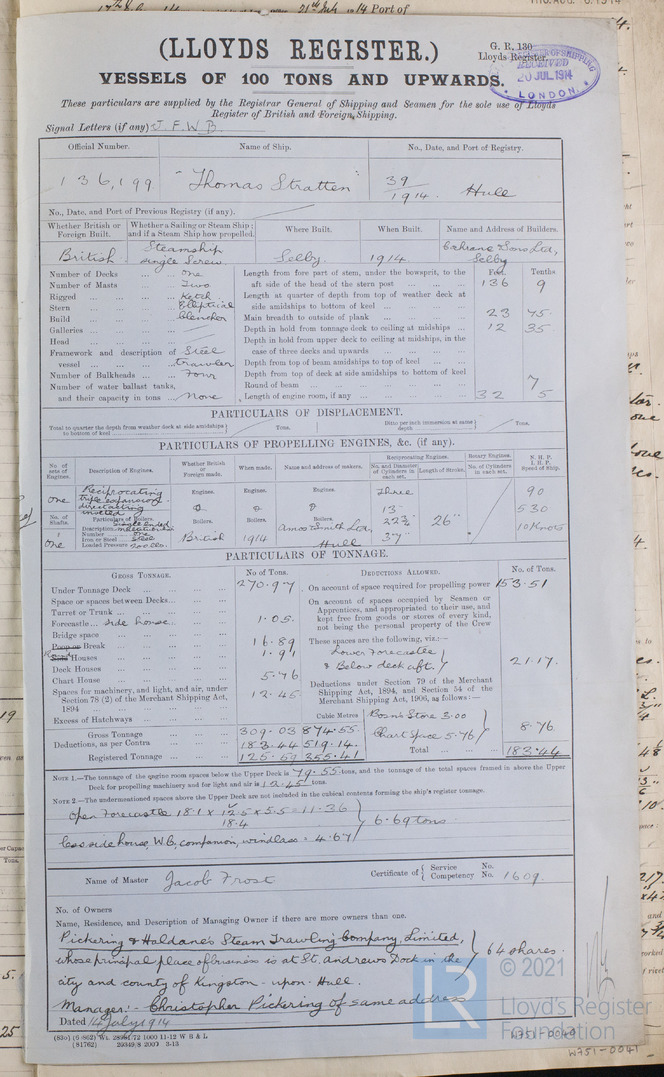 (LLOYDS REGISTER.)
G. R. 130
Lloyds Register.
RECEIVED
20 JUL 1914
LONDON.
VESSELS OF 100 TONS AND UPWARDS.
These particulars are supplied by the Registrar General of Shipping and Seamen for the sole use of Lloyds
Register of British and Foreign Shipping.
Signal Letters (if any) J. F. W. B.
Official Number. Name of Ship. No., Date, and Port of Registry.
136,199 "Thomas Stratten" 39/1914 Hull
No., Date, and Port of Previous Registry (if any).
Whether British or Foreign Built. Whether a Sailing or Steam Ship; and if a Steam Ship how propelled. Where Built. When Built. Name and Address of Builders.
British Steamship single Screw. Selby. 1914. Cochrane & Sons Ltd, Selby
Number of Decks ... one
Number of Masts ... Two
Rigged ... Ketch
Stern ... Elliptical
Build ... Clencher
Galleries ...
Head ...
Framework and description of vessel ... Steel trawler
Number of Bulkheads ... Four
Number of water ballast tanks, and their capacity in tons ... None
Feet Tenths
Length from fore part of stem, under the bowsprit, to the aft side of the head of the stern post ... 136 9
Length at quarter of depth from top of weather deck at side amidships to bottom of keel ...
Main breadth to outside of plank ... 23 45
Depth in hold from tonnage deck to ceiling at midships ... 12 35
Depth in hold from upper deck to ceiling at midships, in the case of three decks and upwards ...
Depth from top of beam amidships to top of keel ...
Depth from top of deck at side amidships to bottom of keel
Round of beam ... 7
Length of engine room, if any ... 32 5
PARTICULARS OF DISPLACEMENT.
Total to quarter the depth from weather deck at side amidships to bottom of keel Tons. Ditto per inch immersion at same depth Tons.
PARTICULARS OF PROPELLING ENGINES, &c. (if any).
No. of sets of Engines. Description of Engines. Whether British or Foreign made. When made. Name and address of makers. Reciprocating Engines. No. and Diameter of Cylinders in each set. Length of Stroke. Rotary Engines. No. of Cylinders in each set. N. H. P. I. H. P. Speed of Ship.
one Reciprocating triple expansion direct acting inverted Engines. Engines. Engines. Three 13" 22½" 37" 26" 90 530 10 Knots
No. of Shafts. Particulars of Boilers. Boilers. Boilers. Boilers.
one Description
Number one
Iron or Steel Steel
Loaded Pressure 200 lbs.
British 1914 Amos Smith Ltd, Hull
PARTICULARS OF TONNAGE.
GROSS TONNAGE. No of Tons.
Under Tonnage Deck ... 270.97
Space or spaces between Decks ...
Turret or Trunk ...
Forecastle ... side house ... 1.05.
Bridge space ...
Poop or Break ... 16.89
Side Houses ... 1.91
Deck Houses ...
Chart House ... 5.76
Spaces for machinery, and light, and air, under Section 78 (2) of the Merchant Shipping Act, 1894 ... 12.45
Excess of Hatchways ...
Cubic Metres
Gross Tonnage ... 309.03 874.55
Deductions, as per Contra ... 183.44 519.14
Registered Tonnage ... 125.59 355.41
DEDUCTIONS ALLOWED. No. of Tons.
On account of space required for propelling power 153.51
On account of spaces occupied by Seamen or Apprentices, and appropriated to their use, and kept free from goods or stores of every kind, not being the personal property of the Crew
These spaces are the following, viz:—
Lower Forecastle & Below deck aft. 21.17.
Deductions under Section 79 of the Merchant Shipping Act, 1894, and Section 54 of the Merchant Shipping Act, 1906, as follows:—
Bosn's Store 3.00
Chart Space 5.76 8.76
Total ... 183.44
NOTE 1.—The tonnage of the engine room spaces below the Upper Deck is 79.55 tons, and the tonnage of the total spaces framed in above the Upper
Deck for propelling machinery and for light and air is 12.45 tons.
NOTE 2.—The undermentioned spaces above the Upper Deck are not included in the cubical contents forming the ship's register tonnage.
Open Forecastle 18.1 x 12.5 x 5.5 = 11.36
18.4
Less side house, W.C, companion, windlass = 4.67
6.69 tons
Name of Master Jacob Frost Certificate of Service No. Competency No. 1609.
No. of Owners
Name, Residence, and Description of Managing Owner if there are more owners than one.
Pickering & Haldane's Steam Trawling Company, Limited,
whose principal place of business is at St. Andrews Dock in the
city and county of Kingston-upon-Hull.
64 shares.
Manager:- Christopher Pickering of same address
Dated 14 July 1914
© 2021
Lloyd's Register
Foundation
W751-0040
W751-0041